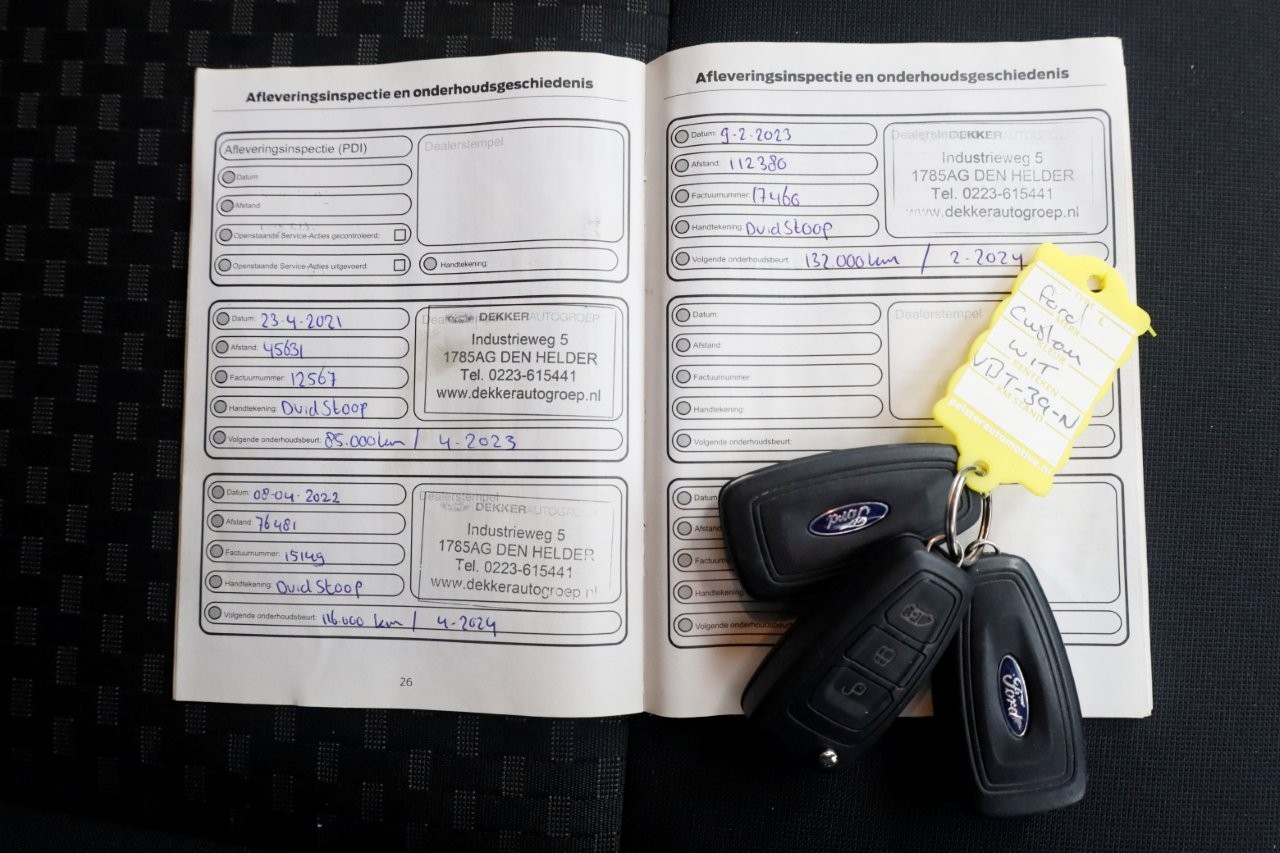 Afleveringsinspectie en onderhoudsgeschiedenis
Afleveringsinspectie (PDI)
Dealerstempel
Datum:
Afstand:
Openstaande Service-Acties gecontroleerd:
Openstaande Service-Acties uitgevoerd:
Handtekening:
Datum: 23-4-2021
Afstand: 45631
Factuurnummer: 12567
Handtekening: DvidStoop
Volgende onderhoudsbeurt: 85.000km / 4-2023
DEKKERAUTOGROEP
Industrieweg 5
1785AG DEN HELDER
Tel. 0223-615441
www.dekkerautogroep.nl
Datum: 08-04-2022
Afstand: 76481
Factuurnummer: 15149
Handtekening: DvidStoop
Volgende onderhoudsbeurt: 116.000 km / 4-2024
Dealerstempel
DEKKERAUTOGROEP
Industrieweg 5
1785AG DEN HELDER
Tel. 0223-615441
www.dekkerautogroep.nl
26
Afleveringsinspectie en onderhoudsgeschiedenis
Datum: 9-2-2023
Afstand: 112380
Factuurnummer: 17466
Handtekening: DvidStoop
Volgende onderhoudsbeurt: 132.000km / 2-2024
DEKKERAUTOGROEP
Industrieweg 5
1785AG DEN HELDER
Tel. 0223-615441
www.dekkerautogroep.nl
Datum:
Afstand:
Factuurnummer:
Handtekening:
Volgende onderhoudsbeurt:
Dealerstempel
Datum
Afstand
Factuurnu
Handtekening
Volgende onderhoudsbeurt
Ford
Custom
WIT
KENTEKEN
VBT-39-N
KM STAND
pelsterautomotive.nl
Ford
Ford